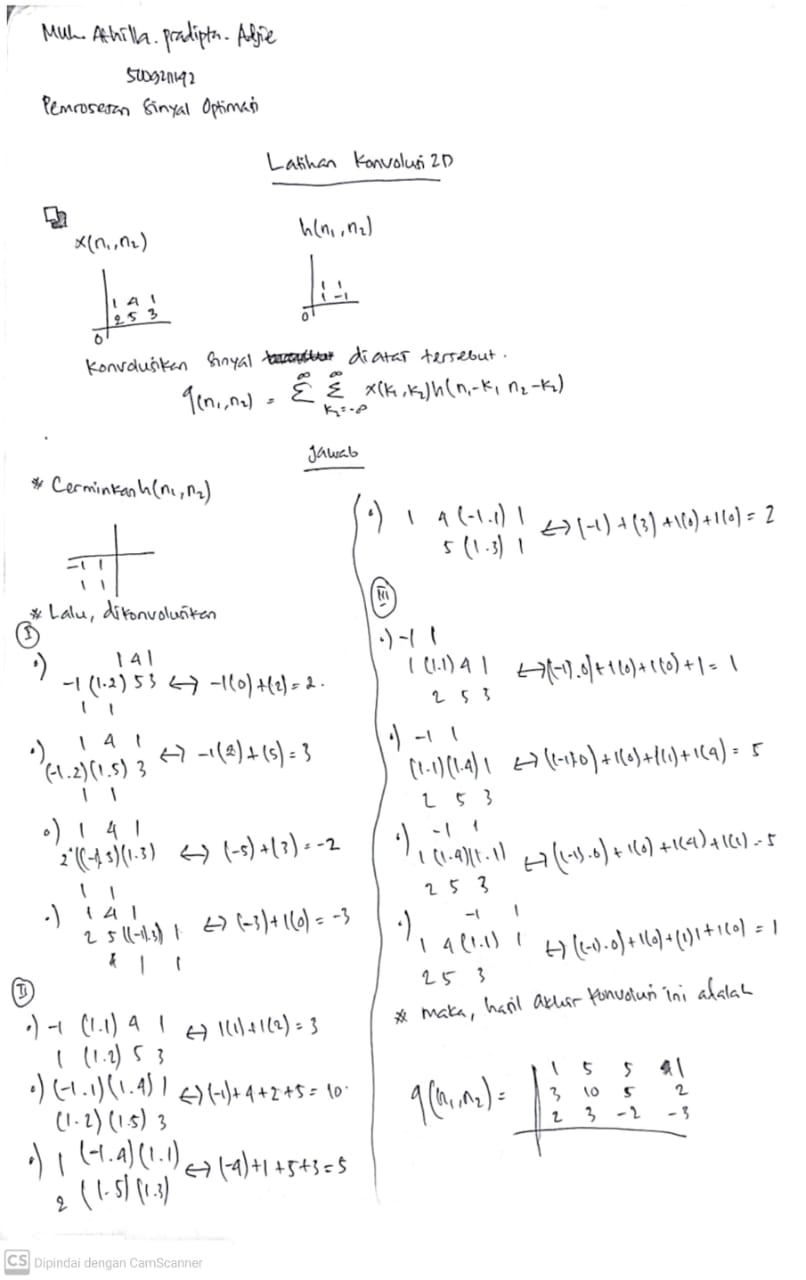 Muh. Athilla. pradipta. Adjie
Pemrosesan Sinyal Optimasi
Latihan Konvolusi 2D
x(n₁,n₂)
h(n₁,n₂)
1 4 1
2 5 3
0
1 1
1 -1
0
Konvolusikan Sinyal diatas tersebut.
q(n₁,n₂) = Σ Σ x(k₁,k₂)h(n₁-k₁ n₂-k₂)
∞ ∞
k₂=-∞
Jawab
* Cerminkan h(n₁,n₂)
-1 1
1 1
* Lalu, dikonvolusikan
I
•) 1 4 1
-1 (1.2) 5 3 ↔ -1(0)+(2)=2.
1 1
•) 1 4 1
(-1.2)(1.5) 3 ↔ -1(2)+(5)=3
1 1
•) 1 4 1
2 ((-1).5)(1.3) ↔ (-5)+(3)=-2
1 1
•) 1 4 1
2 5 ((-1).3) 1 ↔ (-3)+1(0)=-3
1 1
II
•) -1 (1.1) 4 1 ↔ 1(1)+1(2)=3
1 (1.2) 5 3
•) (-1.1)(1.4) 1 ↔ (-1)+4+2+5=10.
(1.2)(1.5) 3
•) 1 (-1.4)(1.1) ↔ (-4)+1+5+3=5
2 (1.5)(1.3)
•) 1 4 (-1.1) 1 ↔ (-1)+(3)+1(0)+1(0)=2
5 (1.3) 1
III
•) -1 1
1 (1.1) 4 1 ↔ (-1).0)+1(0)+1(0)+1=1
2 5 3
•) -1 1
(1.1)(1.4) 1 ↔ ((-1)0)+1(0)+1(1)+1(4)=5
2 5 3
•) -1 1
1 (1.4)(1.1) ↔ ((-1).0)+1(0)+1(4)+1(1)=5
2 5 3
•) -1 1
1 4 (1.1) 1 ↔ ((-1).0)+1(0)+(1)1+1(0)=1
2 5 3
* maka, hasil akhir Konvolusi ini adalah
q(n₁,n₂) =
1 5 5 1
3 10 5 2
2 3 -2 -3
CS Dipindai dengan CamScanner